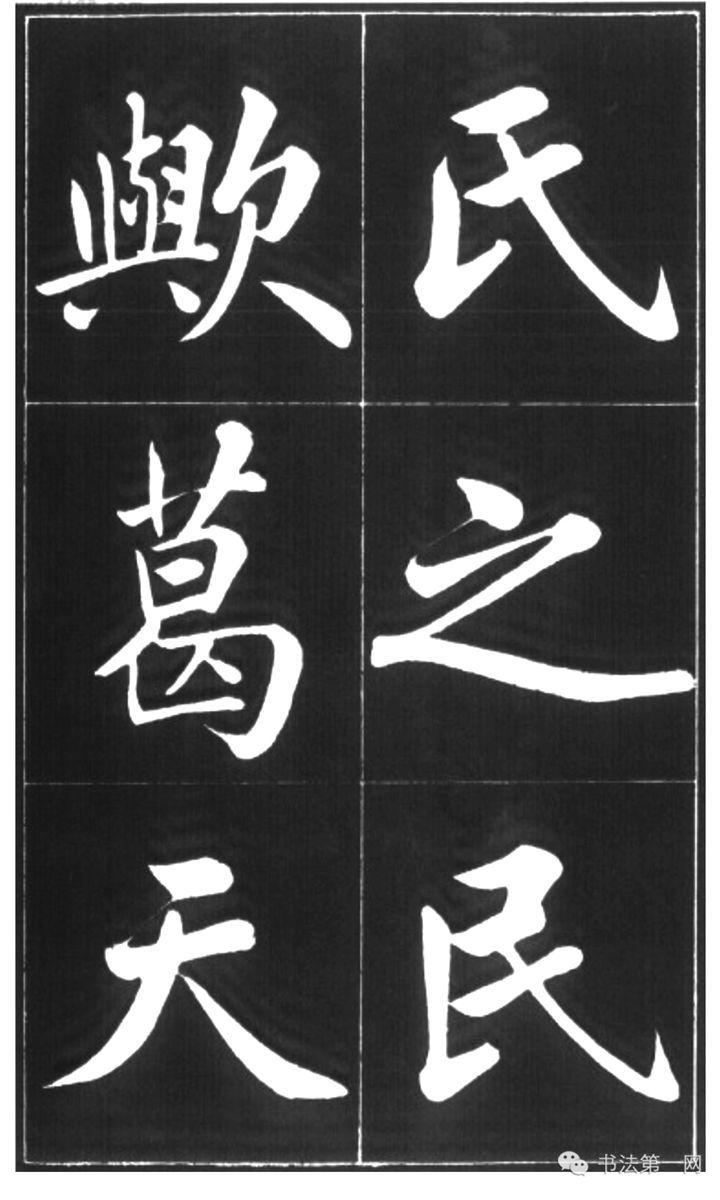 氏之民
歟葛天
书法第一网